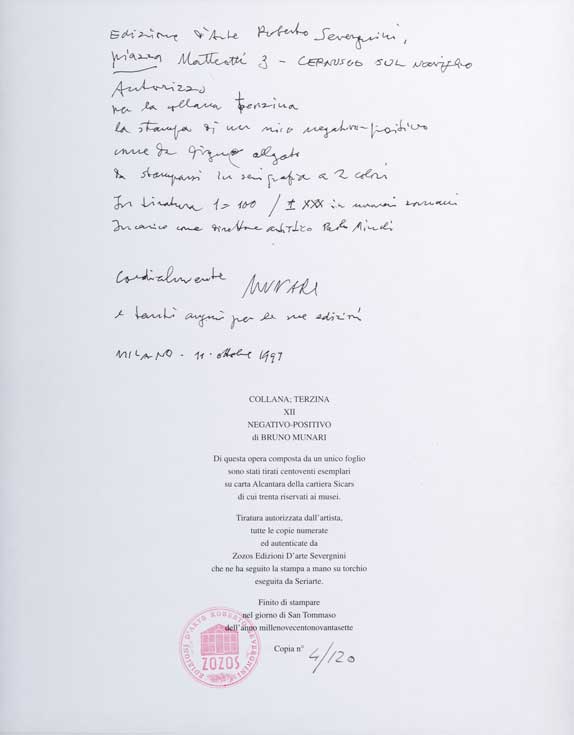 Edizione d'Arte Roberto Severgnini,
piazza Matteotti 3 - CERNUSCO SUL NAVIGLIO
Autorizzo
per la collana terzina
la stampa di un mio negativo-positivo
come da disegno allegato
da stamparsi in serigrafia a 2 colori
In tiratura 1 = 100 / I XXX in numeri romani
Incarico come direttore artistico Paolo
Cordialmente MUNARI
e tanti auguri per le sue edizioni
MILANO - 11 - ottobre 1997
COLLANA; TERZINA
XII
NEGATIVO-POSITIVO
di BRUNO MUNARI
Di questa opera composta da un unico foglio
sono stati tirati centoventi esemplari
su carta Alcantara della cartiera Sicars
di cui trenta riservati ai musei.
Tiratura autorizzata dall'artista,
tutte le copie numerate
ed autenticate da
Zozos Edizioni D'arte Severgnini
che ne ha seguito la stampa a mano su torchio
eseguita da Seriarte.
Finito di stampare
nel giorno di San Tommaso
dell'anno millenovecentonovantasette
Copia n° 4/120
EDIZIONI D'ARTE ROBERTO SEVERGNINI
ZOZOS